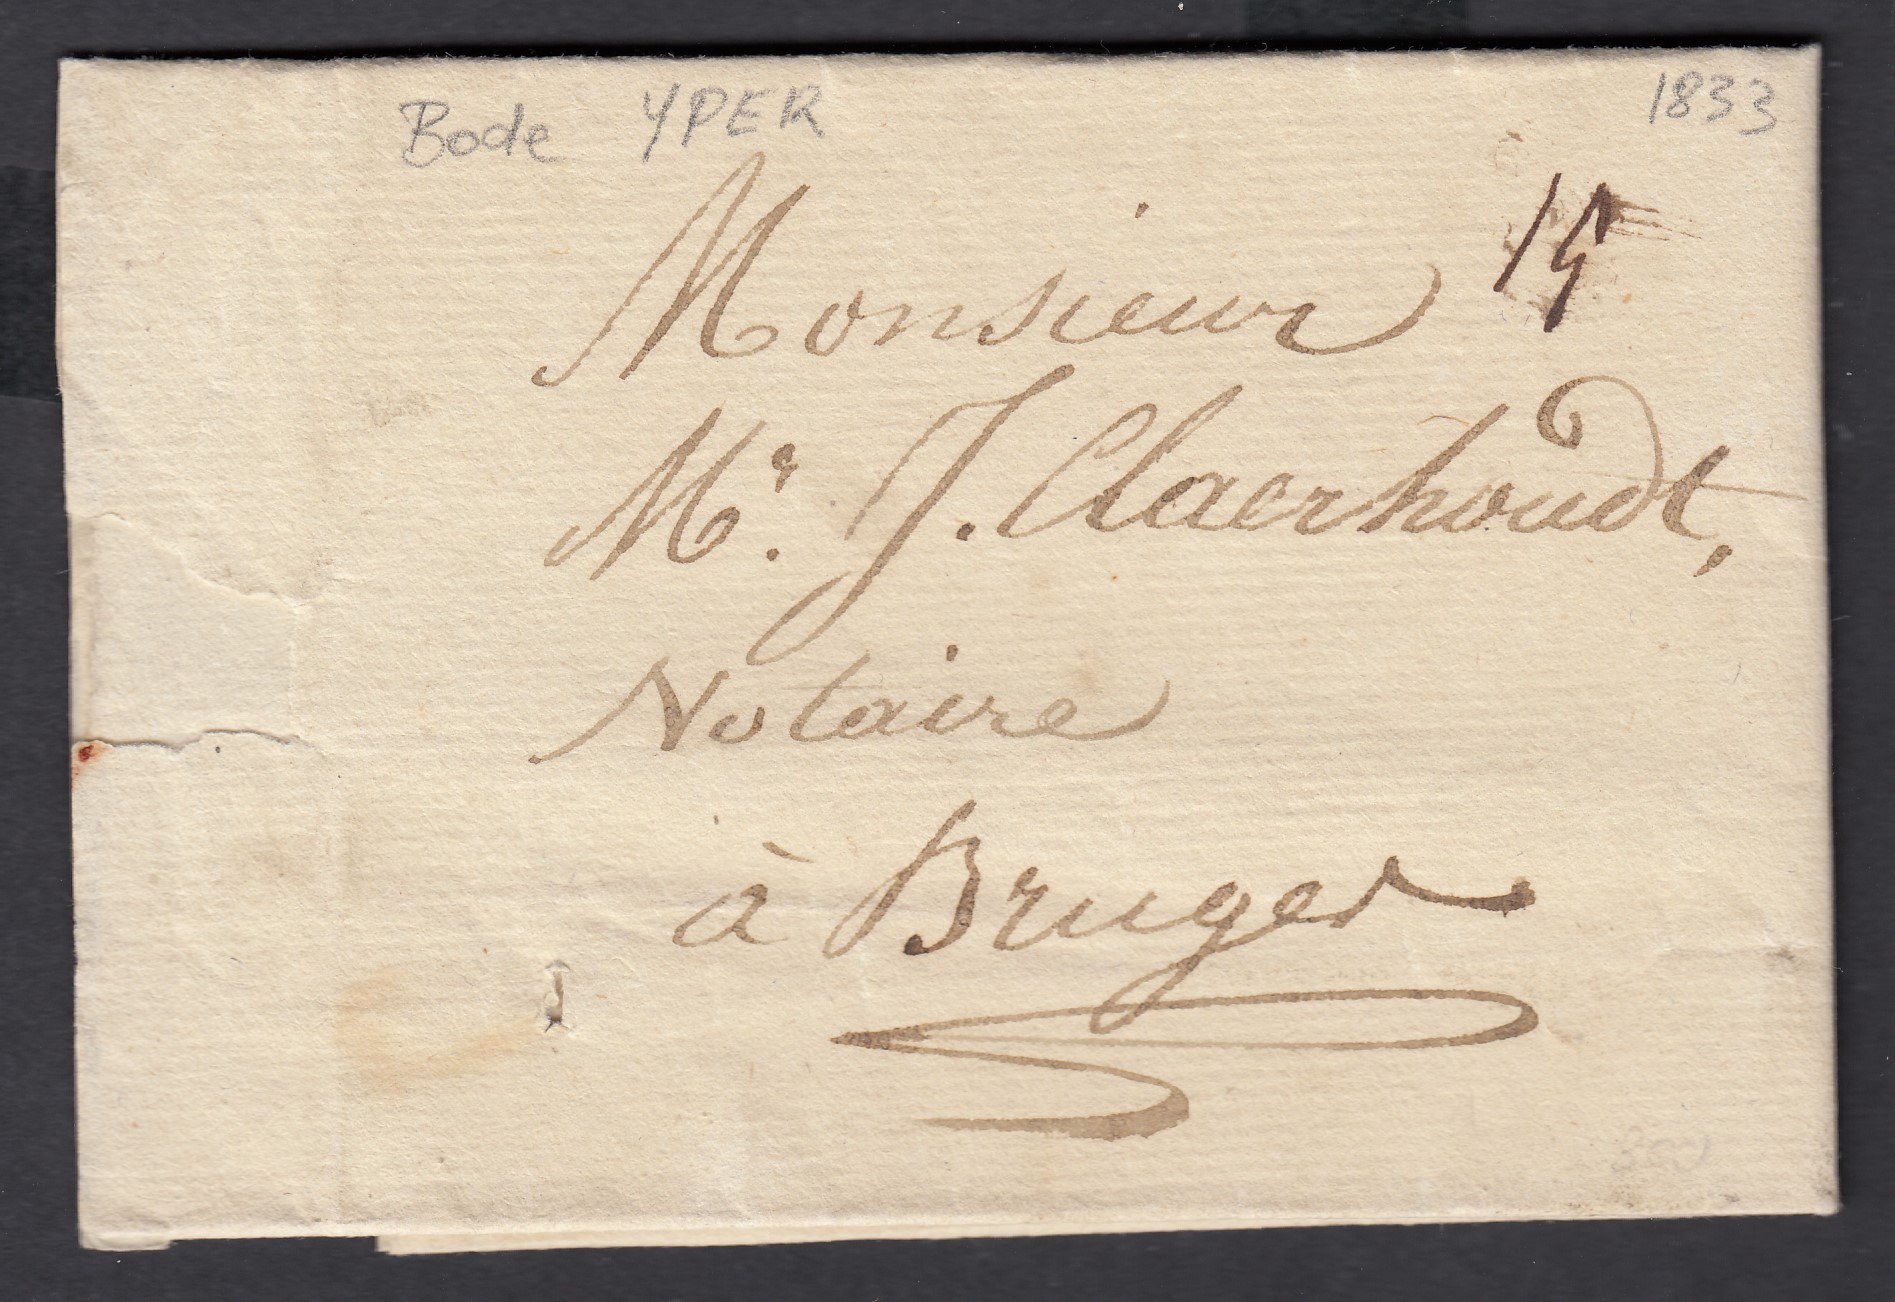 Bode YPER
1833
15
Monsieur
Mr. J. Claerhoudt,
Notaire
à Bruges